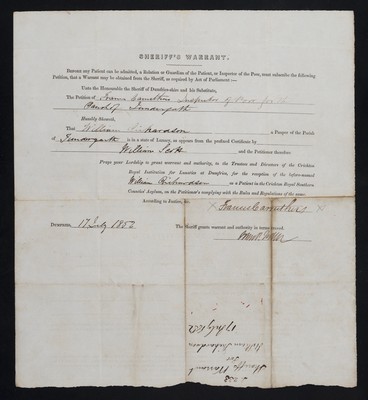 SHERIFF'S WARRANT.
BEFORE any Patient can be admitted, a Relation or Guardian of the Patient, or Inspector of the Poor, must subscribe the following
Petition, that a Warrant may be obtained from the Sheriff, as required by Act of Parliament:—
Unto the Honourable the Sheriff of Dumfries-shire and his Substitute,
The Petition of Francis Carruthers Inspector of Poor for the
Parish of Tundergarth
Humbly Sheweth,
That William Richardson a Pauper of the Parish
of Tundergarth is in a state of Lunacy, as appears from the prefixed Certificate by
William Scott and the Petitioner therefore
Prays your Lordship to grant warrant and authority, to the Trustees and Directors of the Crichton
Royal Institution for Lunatics at Dumfries, for the reception of the before-named
William Richardson as a Patient in the Crichton Royal Southern
Counties' Asylum, on the Petitioner's complying with the Rules and Regulations of the same:
According to Justice, &c.
x Francis Carruthers x
DUMFRIES, 17 July 1852 The Sheriff grants warrant and authority as above craved.
223
Sheriffs Warrant
for
William Richardson
17 July 1852